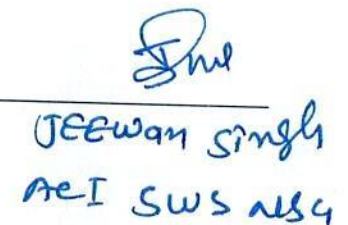 JEEWAN Singh
ACI SWS